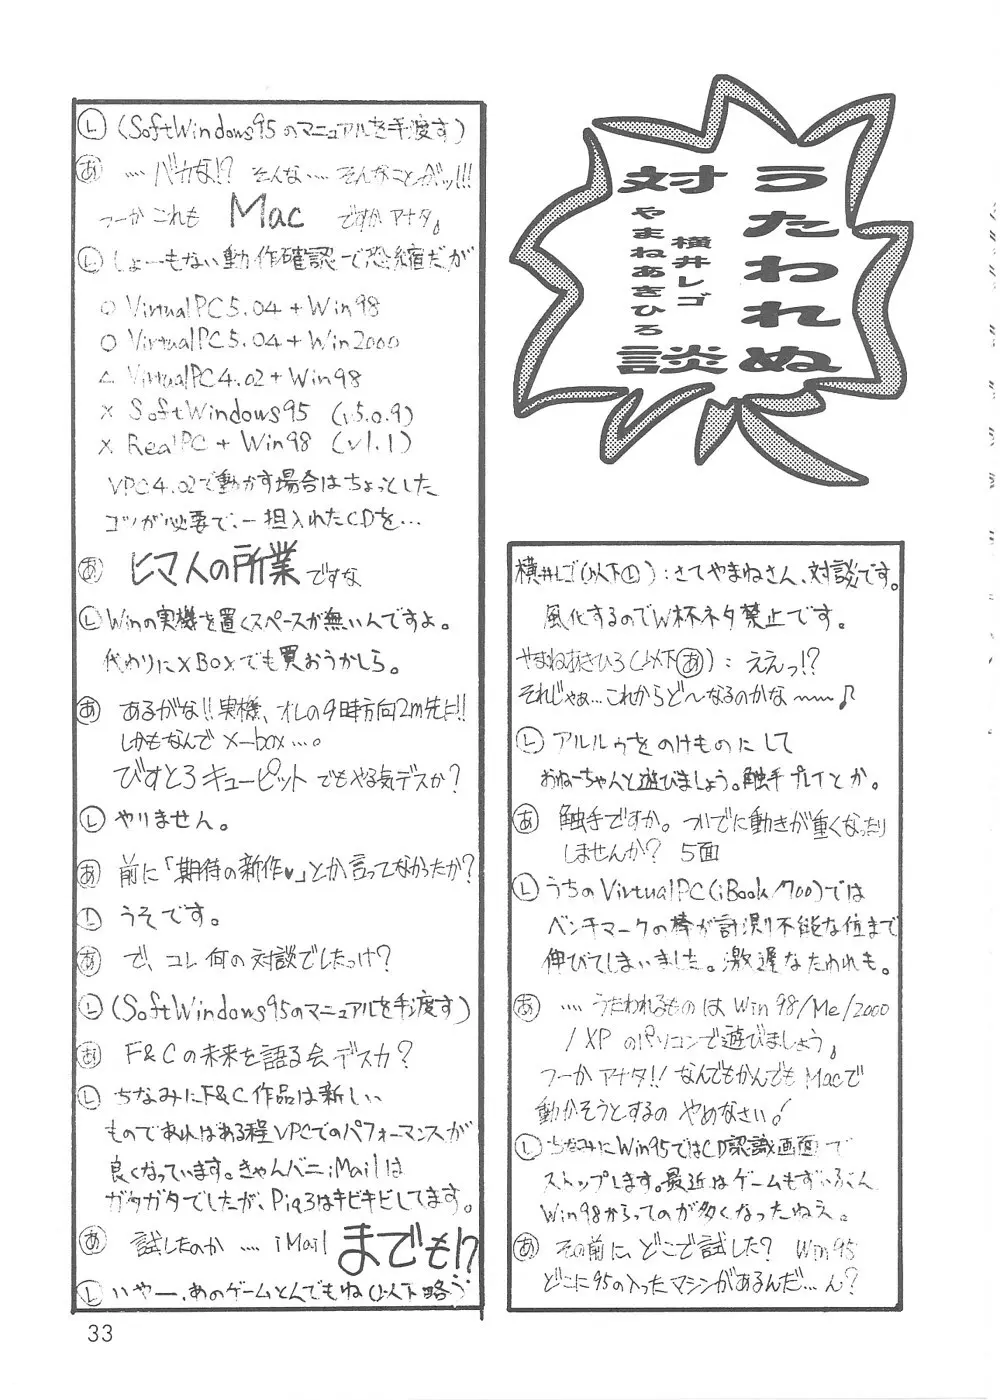 うたわれぬ
対談
横井レゴ
やまねあきひろ
横井レゴ(以下Ⓛ):さてやまねさん、対談です。
風化するのでW杯ネタ禁止です。
やまねあきひろ(以下あ):ええっ!?
それじゃぁ…これからど〜なるのかな〜〜♪
Ⓛ アルルゥをのけものにして
おねーちゃんと遊びましょう。触手プレイとか。
あ 触手ですか。ついでに動きが重くなったり
しませんか? 5面
Ⓛ うちのVirtualPC(iBook/700)では
ベンチマークの棒が計測不能な位まで
伸びてしまいました。激遅なたわれも。
あ ….うたわれるものは Win98/Me/2000
/XPのパソコンで遊びましょう。
つーかアナタ!!なんでもかんでもMacで
動かそうとするの やめなさい!
Ⓛ ちなみにWin95ではCD認識画面で
ストップします。最近はゲームもずいぶん
Win98からってのが多くなったねえ。
あ その前に、どこで試した? Win95
どこに95の入ったマシンがあるんだ…ん?
Ⓛ (SoftWindows95のマニュアルを手渡す)
あ ….バカな!? そんな….そんなことがッ!!!
つーかこれも Mac ですかアナタ。
Ⓛ しょーもない動作確認で恐縮だが
○ VirtualPC5.04+Win98
○ VirtualPC5.04+Win2000
△ VirtualPC4.02+Win98
× SoftWindows95 (v5.0.9)
× RealPC+Win98 (v1.1)
VPC4.02で動かす場合はちょっとした
コツが必要で、一担入れたCDを…
あ ヒマ人の所業ですな
Ⓛ Winの実機を置くスペースが無いんですよ。
代わりにXBoxでも買おうかしら。
あ あるがな!!実機、オレの9時方向2m先に!!
しかもなんでX-box….。
びすとろキューピットでもやる気デスか?
Ⓛ やりません。
あ 前に「期待の新作♥」とか言ってなかったか?
Ⓛ うそです。
あ で、コレ何の対談でしたっけ?
Ⓛ (SoftWindows95のマニュアルを手渡す)
あ F&Cの未来を語る会デスカ?
Ⓛ ちなみにF&C作品は新しい
ものであればある程VPCでのパフォーマンスが
良くなっています。きゃんバニiMailは
ガタガタでしたが、Pia3はキビキビしてます。
あ 試したのか….iMailまでも!?
Ⓛ いやー、あのゲームとんでもね(以下略)
33